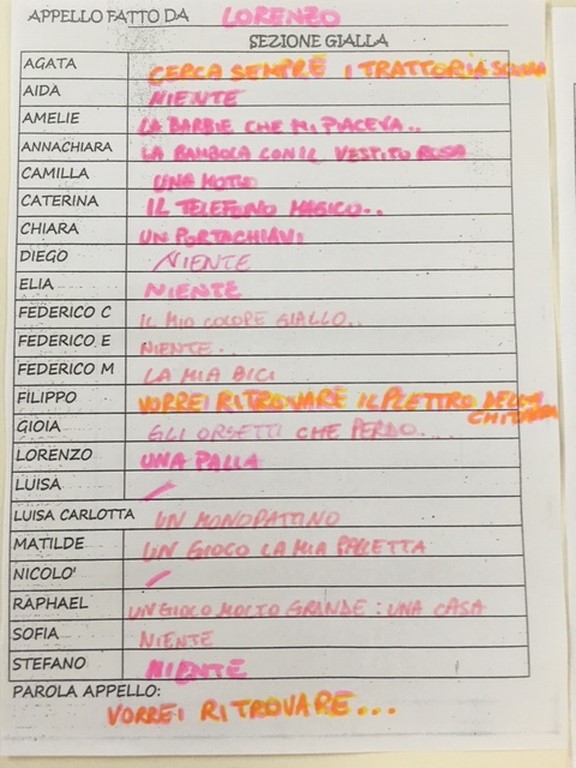 APPELLO FATTO DA LORENZO
SEZIONE GIALLA
AGATA CERCA SEMPRE I TRATTORIA SCUOLA
AIDA NIENTE
AMELIE LA BARBIE CHE MI PIACEVA..
ANNACHIARA LA BAMBOLA CON IL VESTITO ROSA
CAMILLA UNA MOTO
CATERINA IL TELEFONO MAGICO..
CHIARA UN PORTACHIAVI
DIEGO NIENTE
ELIA NIENTE
FEDERICO C IL MIO COLORE GIALLO..
FEDERICO E NIENTE..
FEDERICO M LA MIA BICI
FILIPPO VORREI RITROVARE IL PLETTRO DELLA
CHITARRA
GIOIA GLI ORSETTI CHE PERDO....
LORENZO UNA PALLA
LUISA /
LUISA CARLOTTA UN MONOPATTINO
MATILDE UN GIOCO LA MIA PALETTA
NICOLO' /
RAPHAEL UN GIOCO MOLTO GRANDE: UNA CASA
SOFIA NIENTE
STEFANO NIENTE
PAROLA APPELLO:
VORREI RITROVARE...